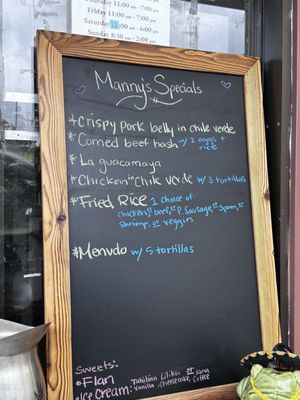 Friday 11:00
Saturday 11:00
Sunday 8:30 am - 2:00
Manny's Specials
*Crispy Pork belly in chile verde
*Corned Beef hash w/ 2 eggs +
rice
*La guacamaya
*Chicken in Chile verde w/ 3 tortillas
*Fried Rice 1 choice of:
chicken, or beef, or P. Sausage, or Spam, or
Shrimp, or veggies
*Menudo w/ 5 tortillas
Sweets:
*Flan
*Ice Cream: Tahitian Vanilla, Lilikoi Cheesecake, or Kona Coffee